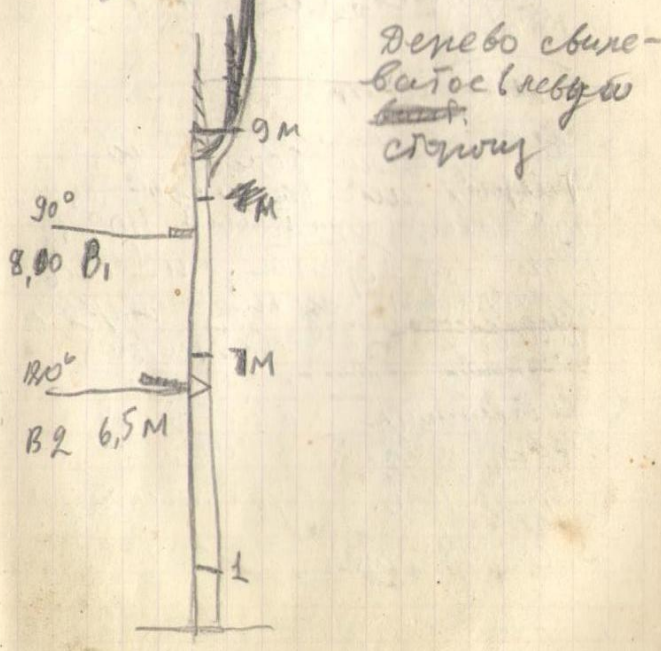 Дерево свиле-
ватое в левую
сторону
9 м
м
90°
8,10 В1
7 м
120°
В2 6,5 м
1